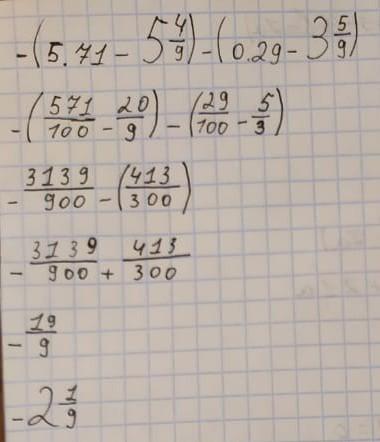 -(5.71 - 5 4/9) - (0.29 - 3 5/9)
-(571/100 - 20/9) - (29/100 - 5/3)
- 3139/900 - (413/300)
- 3139/900 + 413/300
- 19/9
- 2 1/9